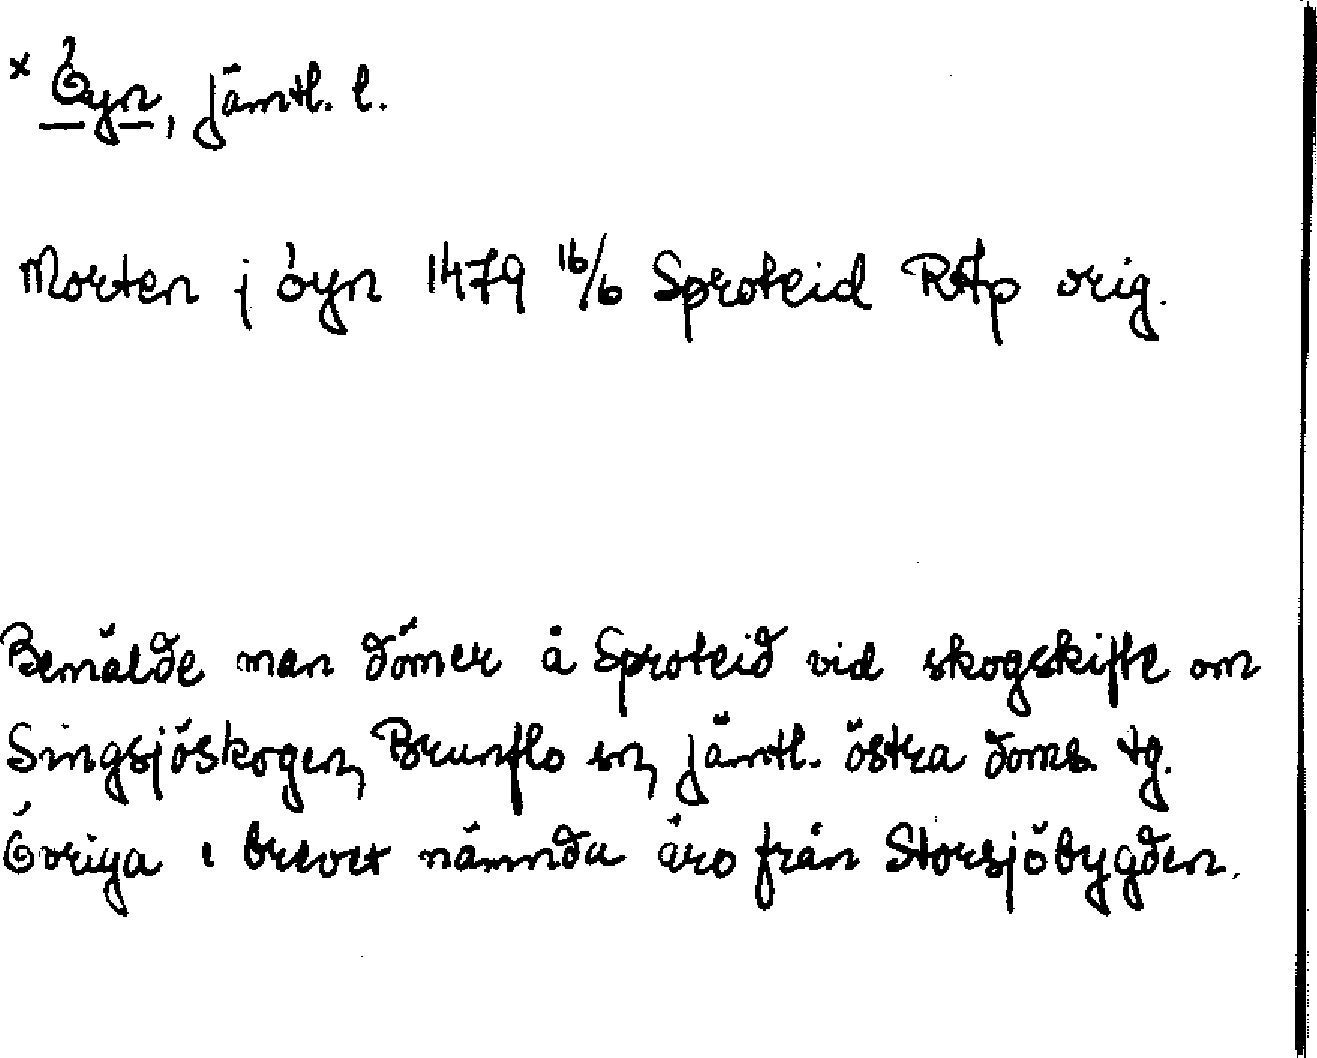 × Öyn, Jämtl. l.
Morten j öyn 1479 16/6 Sproteid RAp orig.
Bemälde man dömer å Sproteid vid skogskifte om
Singsjöskogen, Brunflo sn, Jämtl. östra doms. tg.
Övriga i brevet nämnda äro från Storsjöbygden.